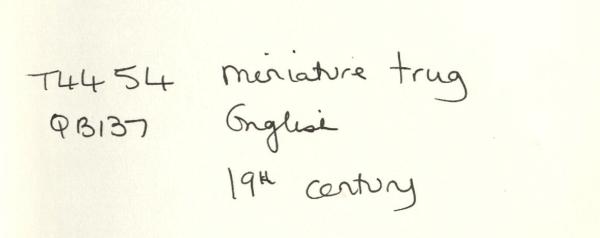 T4454 miniature trug
QB137 English
19th century